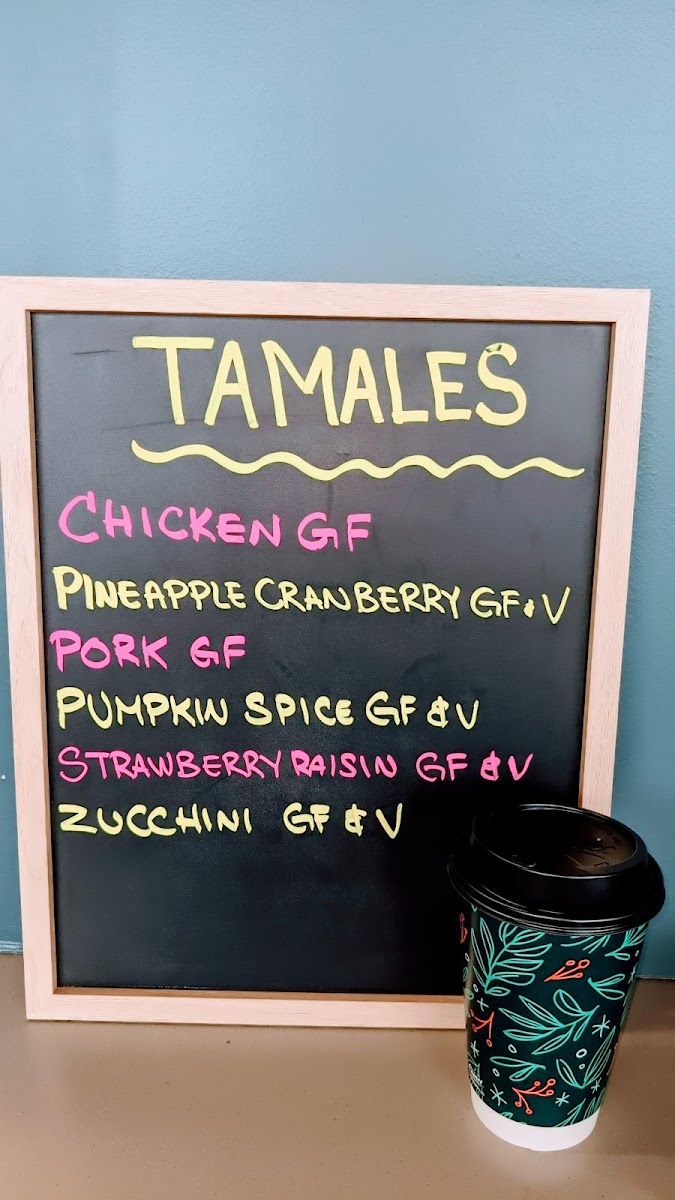 TAMALES
CHICKEN GF
PINEAPPLE CRANBERRY GF & V
PORK GF
PUMPKIN SPICE GF & V
STRAWBERRY RAISIN GF & V
ZUCCHINI GF & V